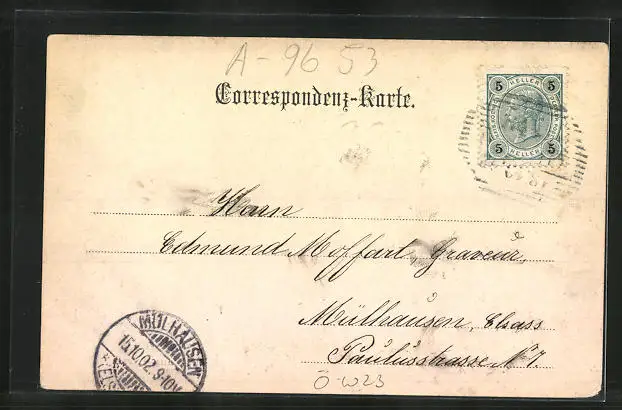 A-9653
Correspondenz-Karte.
5 HELLER 5
5 HELLER 5
Herrn
Edmund Moffart Graveur,
Mülhausen, Elsass
Paulusstrasse N° 7.
MÜLHAUSEN
15.10.02. 9-10
Ö-W23